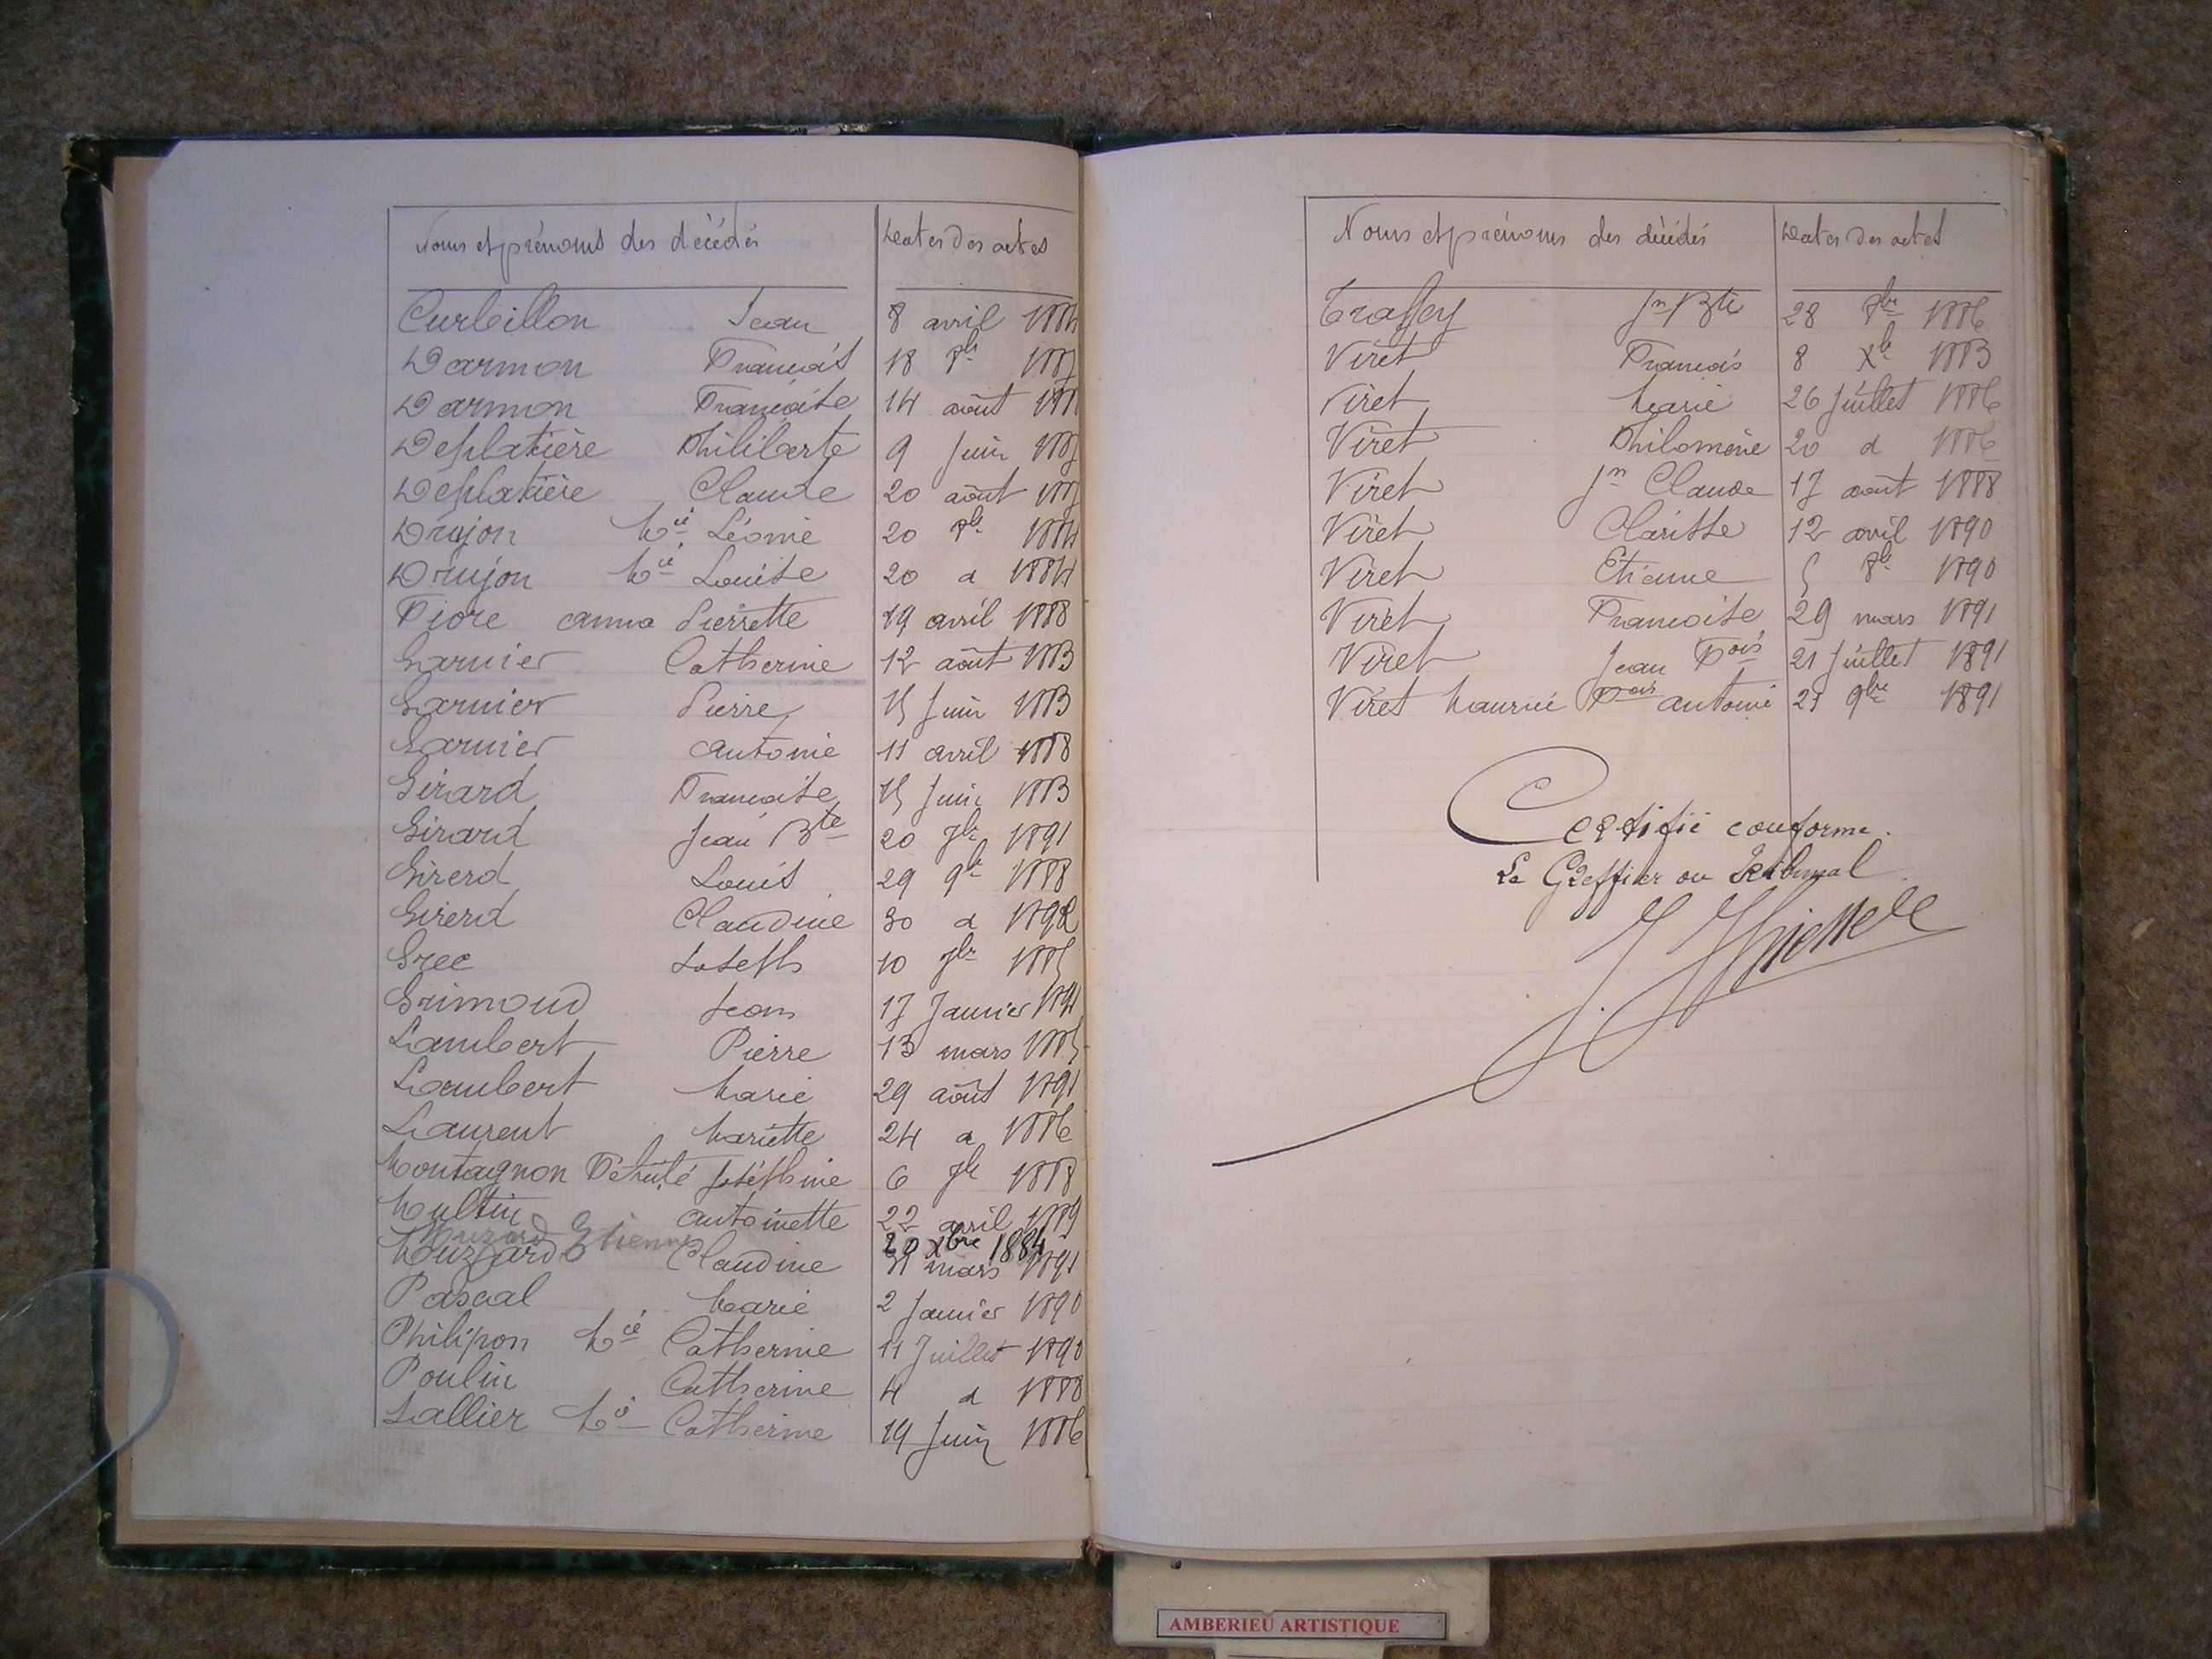 Noms et prénoms des décédés Dates des actes
Curbillon Jean 8 avril 1884
Darmon François 18 8bre
Darmon Françoise 14 août
Desplatière Philiberte 9 Juin
Desplatière Claude 20 août
Drujon Mie Léonie 20 8bre 1884
Drujon Mie Louise 20 d 1884
Fiore anna Pierrette 19 avril 1888
Garnier Catherine 12 août 1883
Garnier Pierre 15 Juin 1883
Garnier Antoine 11 avril 1888
Girard Françoise 15 Juin 1883
Girard Jean Bte 20 7bre 1891
Girerd Louis 29 9bre 1888
Girerd Claudine 30 d 1892
Grec Joseph 10 7bre 1885
Grimoud Jean 17 Janvier
Lambert Pierre 13 mars 1885
Lambert Marie 29 août 1891
Laurent Mariette 24 d 1886
Montagnon Félicité Joséphine 6 7bre 1888
Multin Antoinette 22 avril 1889
Muzard Etienne 20 Xbre 1884
Muzard Claudine 31 mars 1891
Pascal Marie 2 Janvier 1890
Philipon Mie Catherine 11 Juillet 1890
Poulin Catherine 4 d 1888
Sallier Mie Catherine 19 Juin 1886
Noms et prénoms des décédés Dates des actes
Traffey Jn Bte 28 8bre 1886
Viret François 8 Xbre 1883
Viret Marie 26 Juillet 1886
Viret Philomène 20 d 1886
Viret Jn Claude 17 août 1888
Viret Clarisse 12 avril 1890
Viret Etienne 5 8bre 1890
Viret Françoise 29 mars 1891
Viret Jean Fois 21 Juillet 1891
Viret Maurice Fois Antoine 21 9bre 1891
Certifié conforme.
Le Greffier du Tribunal
AMBERIEU ARTISTIQUE